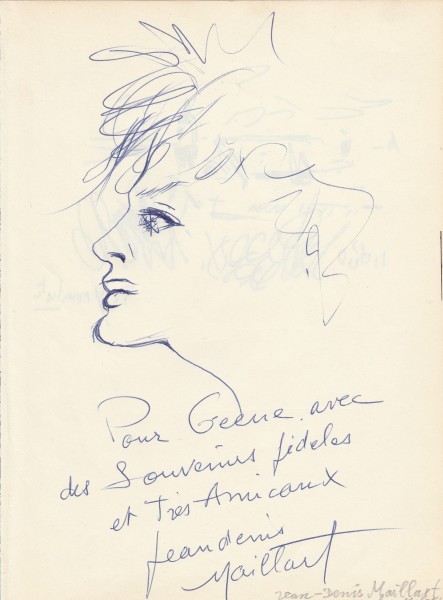 Pour Geene avec
des Souvenirs fideles
et Très Amicaux
Jean denis
Maillart
Jean-Denis Maillart